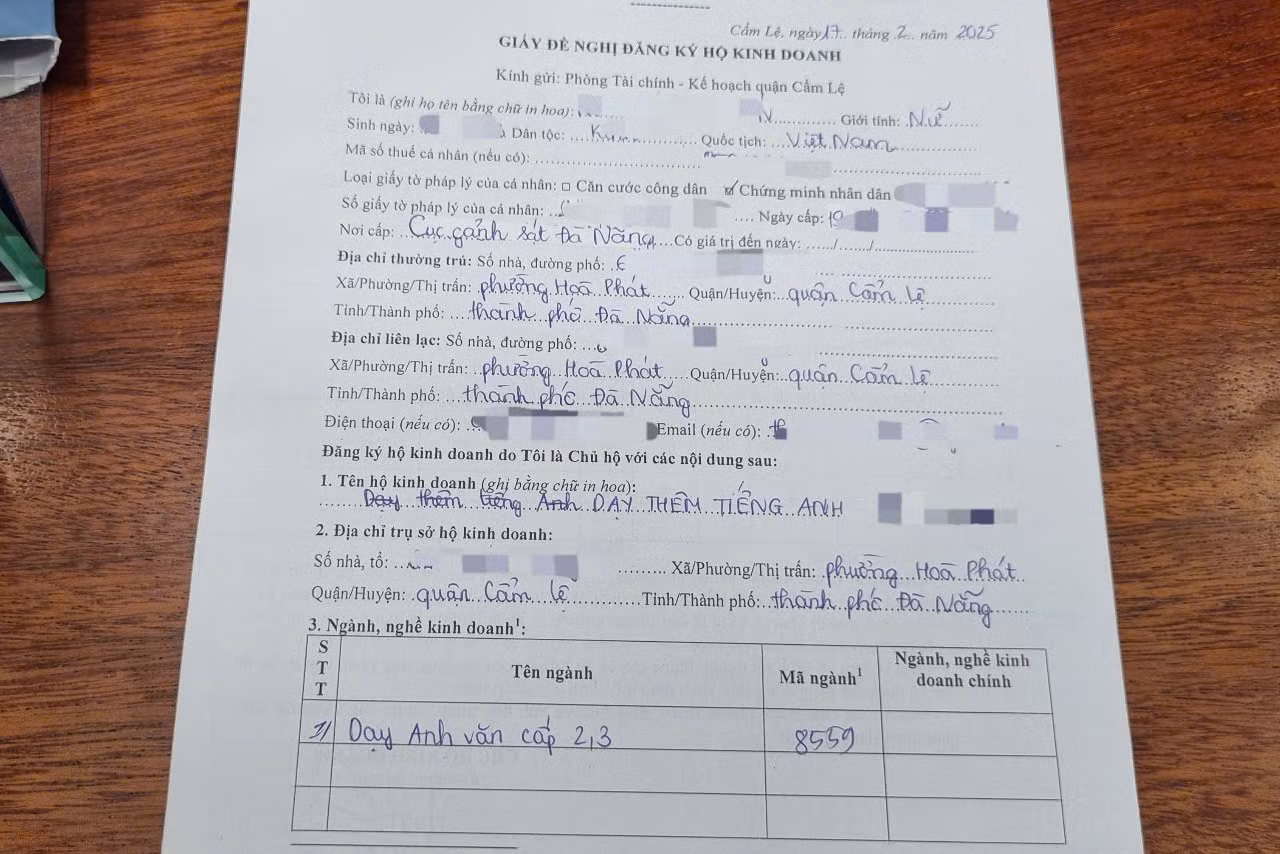 Cẩm Lệ, ngày 17 tháng 2 năm 2025
GIẤY ĐỀ NGHỊ ĐĂNG KÝ HỘ KINH DOANH
Kính gửi: Phòng Tài chính - Kế hoạch quận Cẩm Lệ
Tôi là (ghi họ tên bằng chữ in hoa): Giới tính: Nữ
Sinh ngày: Dân tộc: Quốc tịch: Việt Nam
Mã số thuế cá nhân (nếu có):
Loại giấy tờ pháp lý của cá nhân: □ Căn cước công dân ☑ Chứng minh nhân dân
Số giấy tờ pháp lý của cá nhân: Ngày cấp: 19
Nơi cấp: Cục gảnh sát Đà Nẵng Có giá trị đến ngày: ...../......../
Địa chỉ thường trú: Số nhà, đường phố:
Xã/Phường/Thị trấn: phường Hoà Phát Quận/Huyện: quận Cẩm Lệ
Tỉnh/Thành phố: thành phố Đà Nẵng
Địa chỉ liên lạc: Số nhà, đường phố:
Xã/Phường/Thị trấn: phường Hoà Phát Quận/Huyện: quận Cẩm Lệ
Tỉnh/Thành phố: thành phố Đà Nẵng
Điện thoại (nếu có): Email (nếu có):
Đăng ký hộ kinh doanh do Tôi là Chủ hộ với các nội dung sau:
1. Tên hộ kinh doanh (ghi bằng chữ in hoa):
Dạy thêm tiếng Anh DẠY THÊM TIẾNG ANH
2. Địa chỉ trụ sở hộ kinh doanh:
Số nhà, tổ: Xã/Phường/Thị trấn: phường Hoà Phát
Quận/Huyện: quận Cẩm Lệ Tỉnh/Thành phố: thành phố Đà Nẵng
3. Ngành, nghề kinh doanh¹:
STT Tên ngành Mã ngành¹ Ngành, nghề kinh doanh chính
1/ Dạy Anh văn cấp 2,3 8559